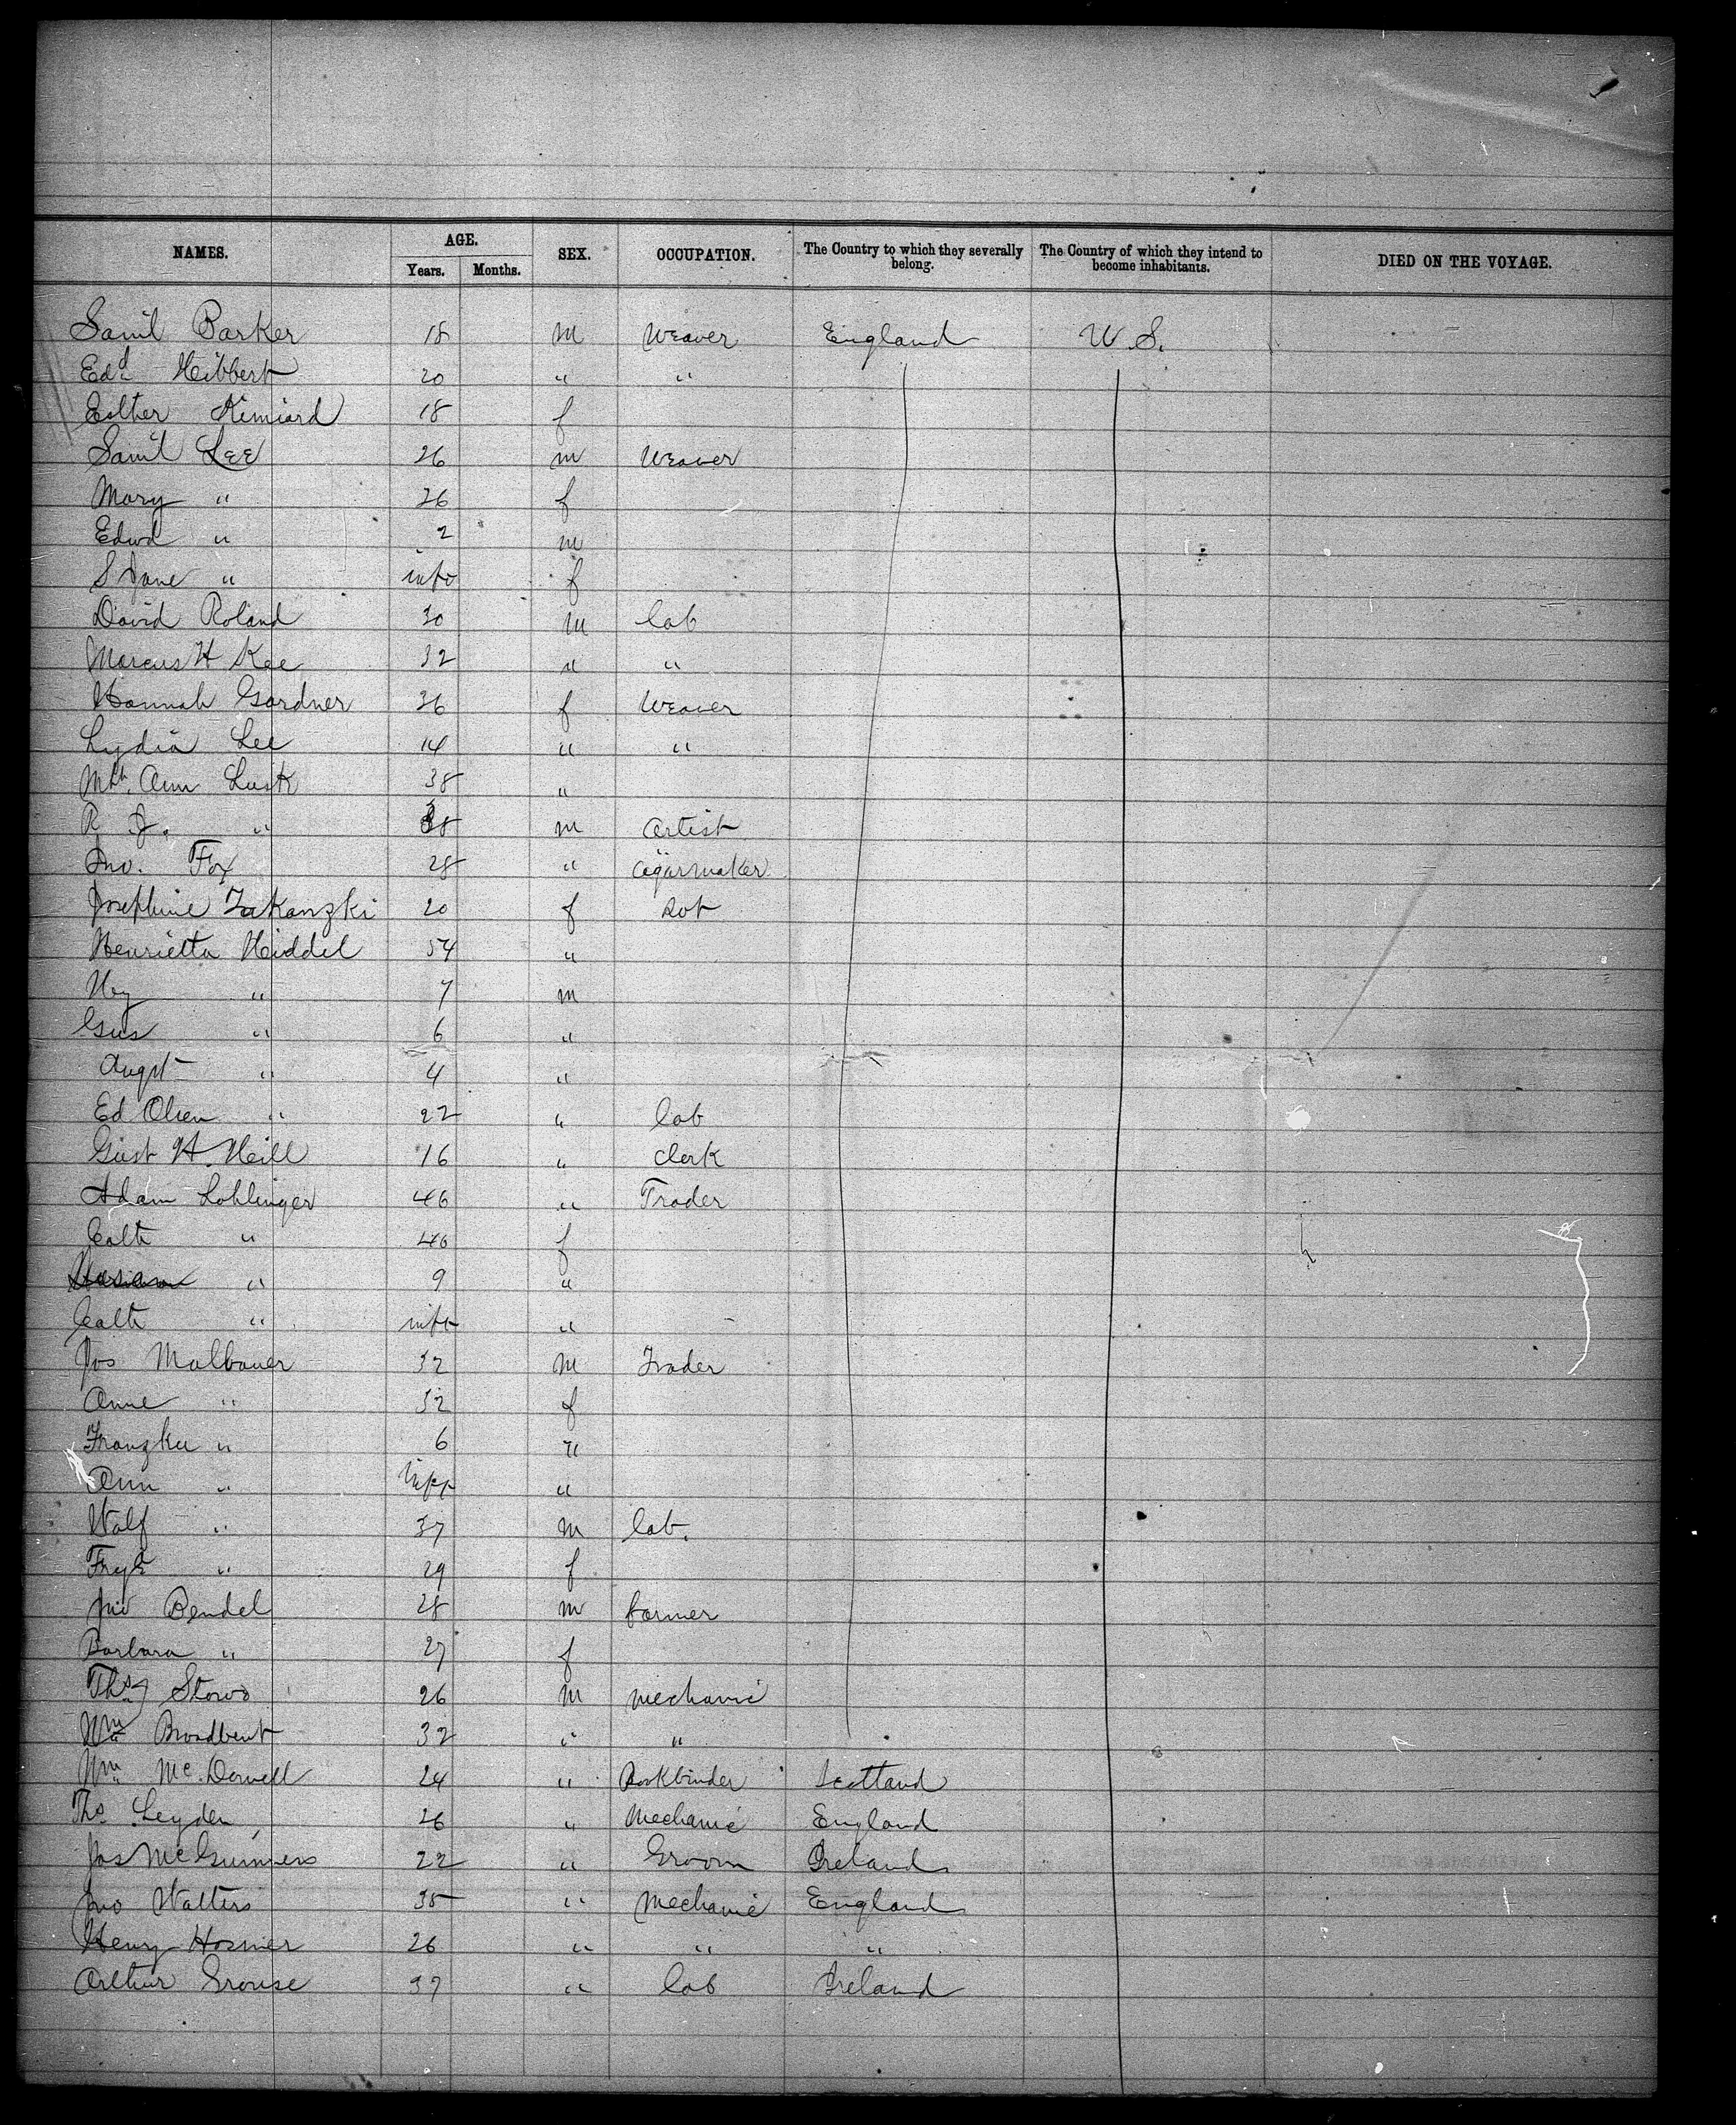 NAMES. AGE. SEX. OCCUPATION. The Country to which they severally belong. The Country of which they intend to become inhabitants. DIED ON THE VOYAGE.
Years. Months.
Saml Barker 18 m Weaver England U.S.
Edd Hibbert 20 " "
Esther 18 f
Saml Lee 26 m Weaver
Mary " 26 f
Edwd " 2 m
S Jane " inft f
David Roland 30 m lab
Marcus H Kee 32 " "
Hannah Gardner 36 f Weaver
Lydia Lee 14 " "
Ann Lusk 38 "
R J. " 38 m Artist
Jno. Fox 28 " Cigarmaker
Josephine Zakanzki 20 f
Henrietta Heiddel 54 "
Hy " 7 m
Gus " 6 "
Augst " 4 "
Ed Olsen " 22 " lab
Gust H. Heill 16 " Clerk
Adam Lohlinger 46 " Trader
Cath " 46 f
" 9 "
Cath " inft "
Jos Malbauer 32 m Trader
Anne " 32 f
Franzka " 6 "
Ann " inft "
Wolf " 37 m lab.
" 29 f
Jno Bendel 28 m farmer
Barbara " 27 f
Ths 26 m mechanic
Wm Broadbent 32 " "
Wm McDowell 24 " Bookbinder Scotland
Ths Leyden 26 " Mechanic England
Jas McGuinness 22 " Groom Ireland
Jno Walters 35 " Mechanic England
Henry Hosmer 26 " " "
Arthur Grouse 37 " lab Ireland